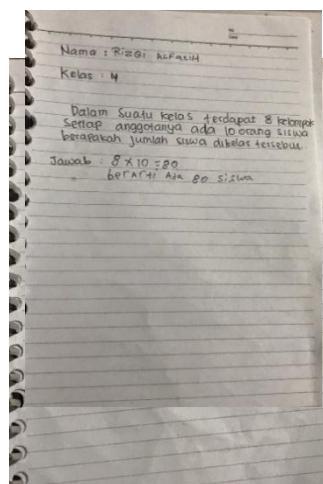 Nama : Rizqi Alfasih
Kelas : 4
Dalam suatu kelas terdapat 8 kelompok
Setiap anggotanya ada 10 orang siswa
berapakah jumlah siswa dikelas tersebut
Jawab : 8 x 10 = 80
berarti Ada 80 siswa